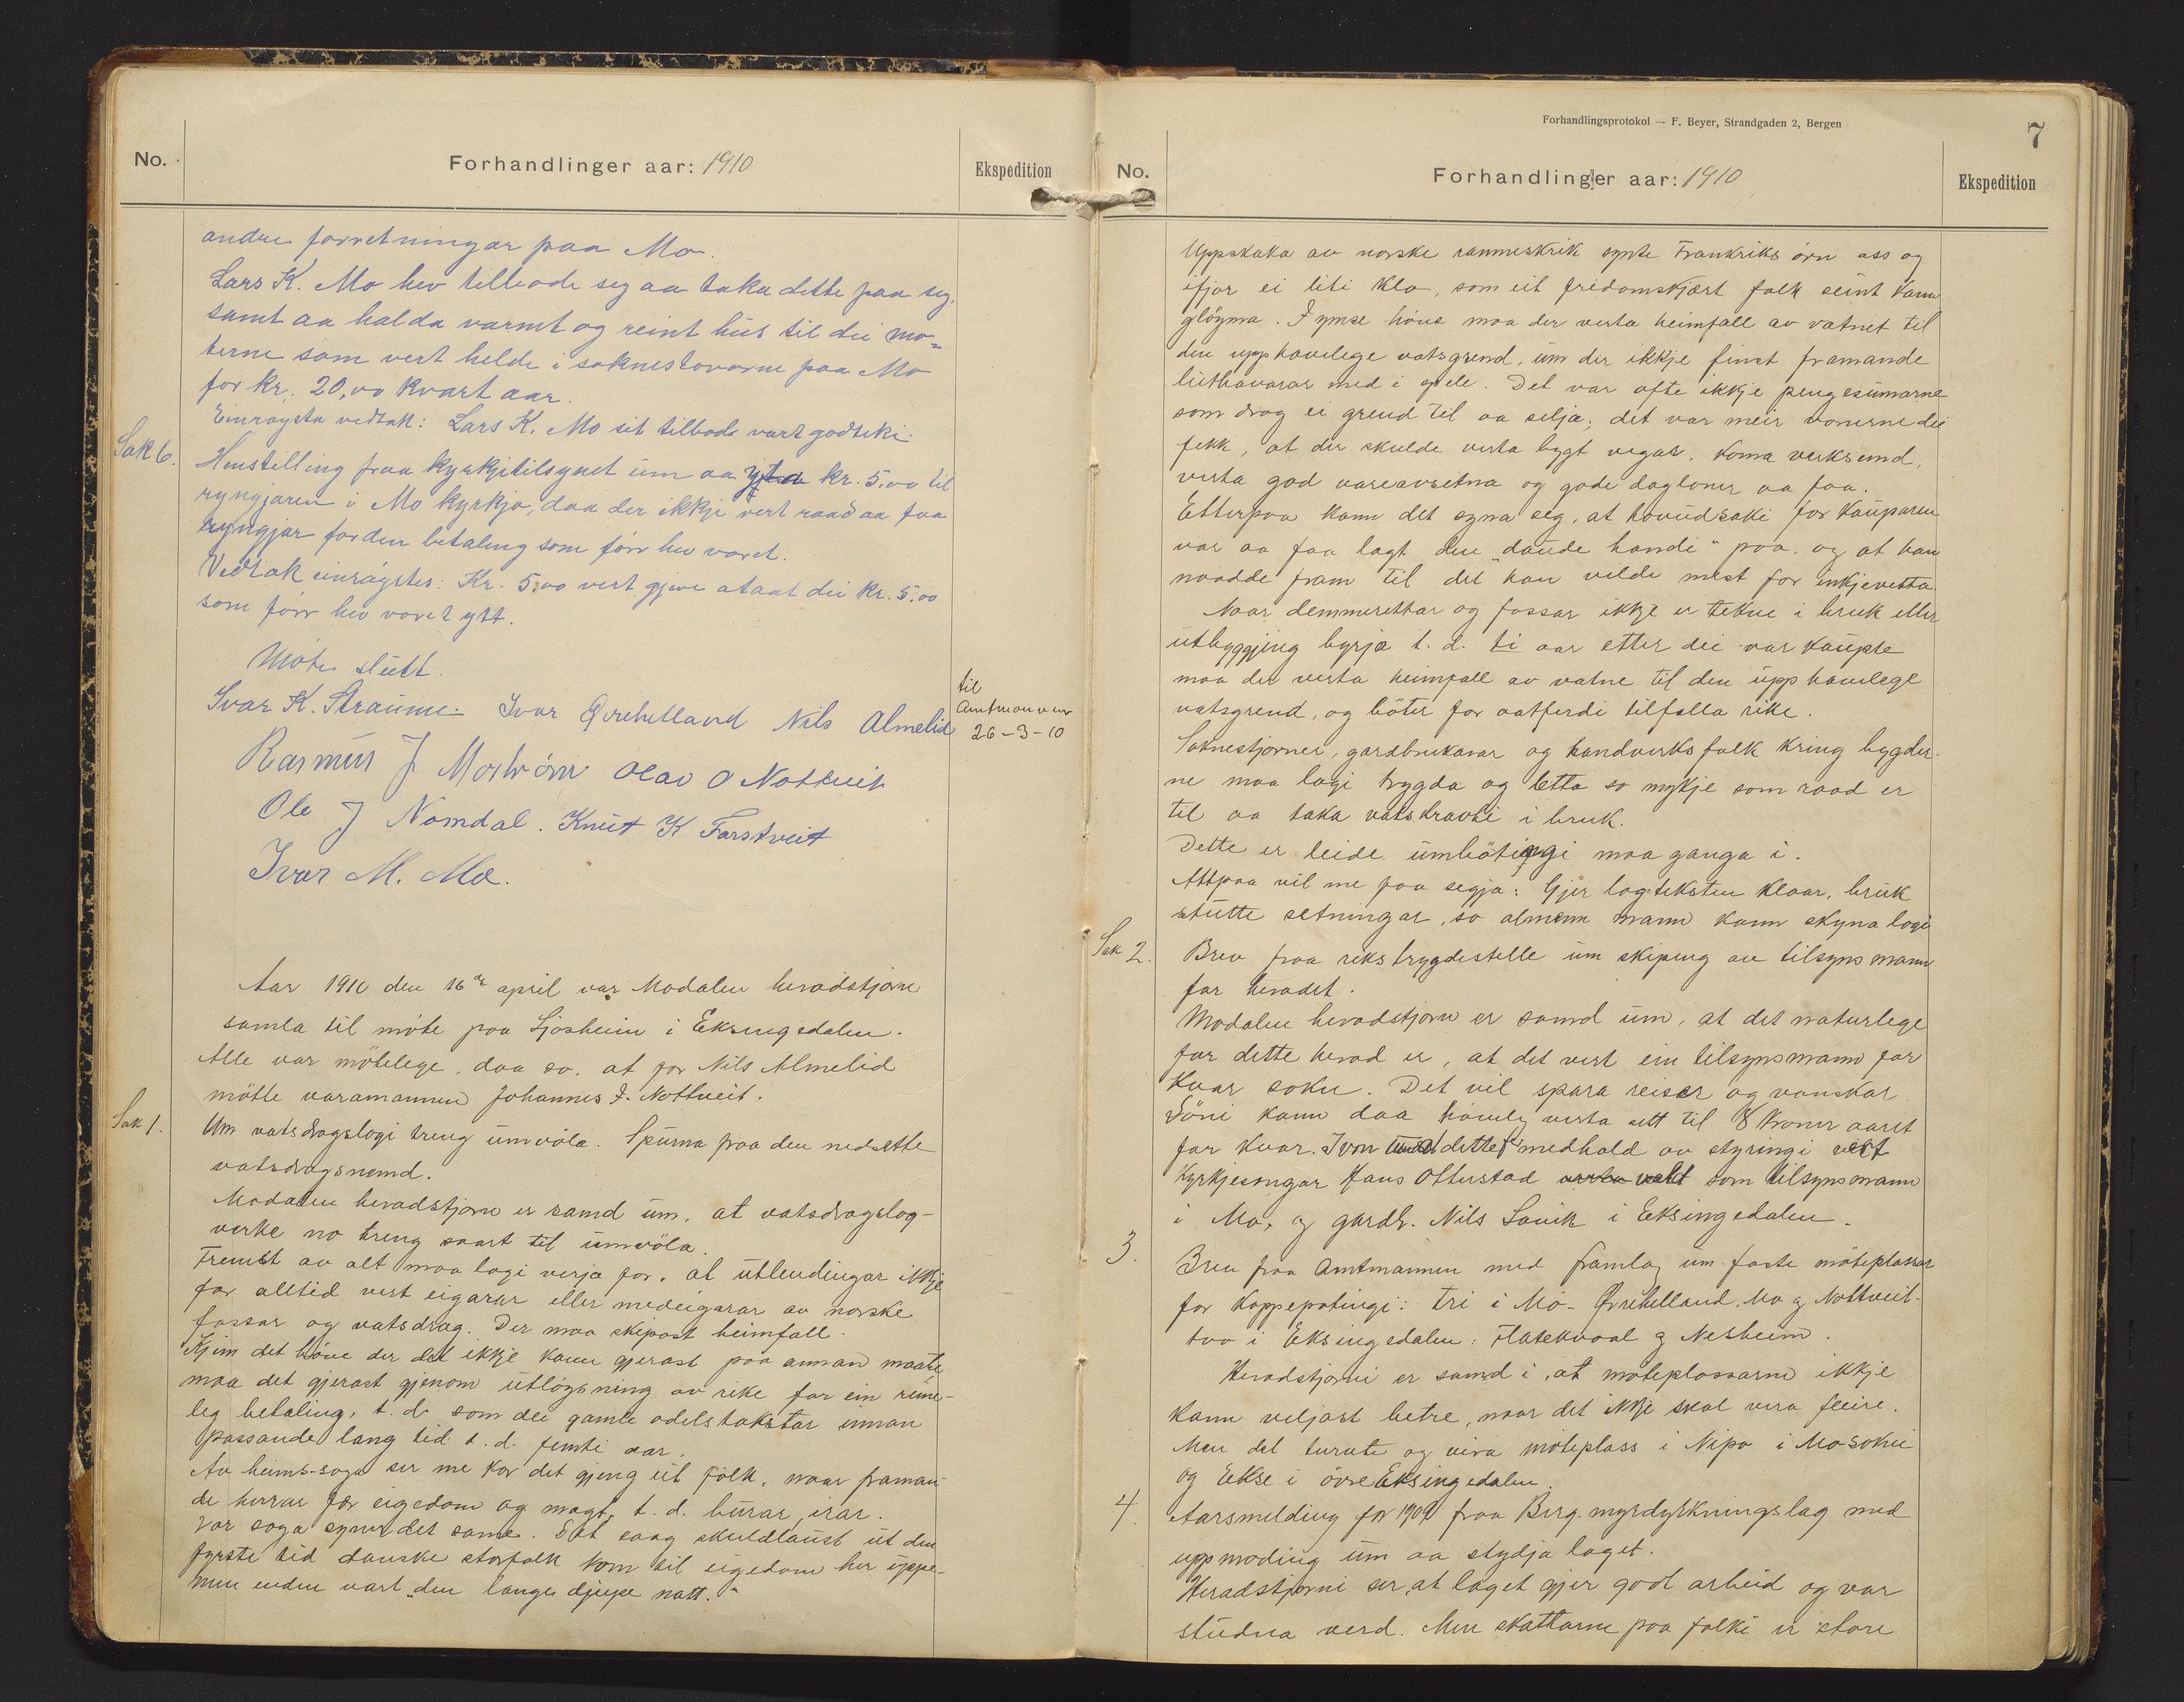 No.
Forhandlinger aar: 1910
Ekspedition
andre forretningar paa Mo.
Lars K. Mo hev tilbode seg aa taka dette paa seg,
samt aa halda varmt og reint hus til dei mo-
terne som vert helde i soknestovorne paa Mo
for kr. 20,00 kvart aar.
Einrøysta vedtak: Lars K. Mo sit tilbode vart godteki.
Sak 6.
Henstilling fraa kyrkjetilsynet um aa yta kr. 5,00 til
ryngjaren i Mo kyrkja, daa der ikkje vert raad aa faa
ryngjar for den betaling som førr hev voret.
Vedtak einrøystes: Kr. 5,00 vert gjeve ataat dei kr. 5,00
som førr hev voret ytt.
Møte slutt.
Ivar K. Straume. Ivar Øvrehelland Nils Almelid
til
Amtmannen
26-3-10
Rasmus J Mostrøm Olav O Nottveit
Ole J Nomdal. Knut K Farstveit
Ivar M. Mo.
Aar 1910 den 16de april var Modalen heradstjorn
samla til møte paa Sjosheim i Eksingedalen.
Alle var møtelege, daa so, at for Nils Almelid
møtte varamannen Johannes J. Nottveit.
Sak 1.
Um vatsdragslogi treng umvøla. Spurna fraa den nedsette
vatsdragsnemd.
Modalen heradstjorn er samd um, at vatsdragslog-
verke no treng saart til umvøla.
Fremst av alt maa logi verja for, at utlendingar ikkje
for alltid vert eigarar eller medeigarar av norske
fossar og vatsdrag. Der maa skipast heimfall.
Kjem det høve der det ikkje kann gjerast paa annan maate
maa det gjerast gjenom utløysning av rike for ein rime-
leg betaling, t. d. som dei gamle odelstakstar innan
passande lang tid t. d. femti aar.
Av heims-soga ser me kor det gjeng eit folk, naar framan-
de herrar fær eigedom og magt, t. d. burar, irar.
Vor soga syner det same. Det saag skuldlaust ut den
fyrste tid danske storfolk kom til eigedom her uppe-
men enden vart "den lange djupe natt."
Forhandlingsprotokol — F. Beyer, Strandgaden 2, Bergen
7
No.
Forhandlinger aar: 1910
Ekspedition
Uppskaka av norske ramneskrik synte Frankriks ørn oss og
ifjor ei liti klo, som eit fridomskjært folk seint kann
gløyma. I ymse høve maa der verta heimfall av vatnet til
den upphavelege vatsgrend, um der ikkje finst framande
luthavarar med i spele. Det var ofte ikkje pengesumarne
som drog ei grend til aa selja, det var meir vonerne dei
fekk, at der skulde verta bygt vegar, koma verksemd,
verta god vareavsetna og gode dagloner aa faa.
Etterpaa kann det syna seg, at hovudsaki for kauparen
var aa faa lagt den "daude handi" paa, og at han
naadde fram til det han vilde mest for inkjevetta.
Naar demmerettar og fossar ikkje er tekne i bruk eller
utbyggjing byrja t. d. ti aar etter dei var kaupte
maa der verta heimfall av vatne til den upphavelege
vatsgrend, og bøter for aatferdi tilfalla rike.
Soknestjorner, gardbrukarar og handverksfolk kring bygder-
ne maa logi trygda og letta so mykje som raad er
til aa taka vatskrafti i bruk.
Dette er leide umbøtingi maa ganga i.
Attpaa vil me faa segja: Gjer logteksten klaar, bruk
stutte setningar, so almenn mann kann skyna logi
Sak 2.
Brev fraa rikstrygdestelle um skiping av tilsynsmann
for heradet.
Modalen heradstjorn er samd um, at det naturlege
for dette herad er, at det vert ein tilsynsmann for
kvar sokn. Det vil spara reiser og vanskar.
Løni kann daa høveleg verta sett til 8 kroner aaret
for kvar. Ivon dette medhald av styringi vert
Kyrkjesongar Hans Otterstad verta vald som tilsynsmann
i Mo, og gardb. Nils Lavik i Eksingedalen.
3.
Brev fraa Amtmannen med framlag um faste møteplassar
for koppepotingi: tri i Mo - Øvrehelland, Mo og Nottveit-
tvo i Eksingedalen: Flatekvaal og Nesheim.
Heradstjorni er samd i, at møteplassarne ikkje
kann veljast betre, naar det ikkje skal vera fleire.
Men det turvte og vera møteplass i Nipo i Mo sokn
og Eekse i øvre Eksingedalen.
4.
Aarsmelding for 1909 fraa Berg. myrdyrkningslag med
uppmoding um aa stydja laget.
Heradstjorni ser, at laget gjer godt arbeid og var
studna verd. Men skattarne paa folki er store